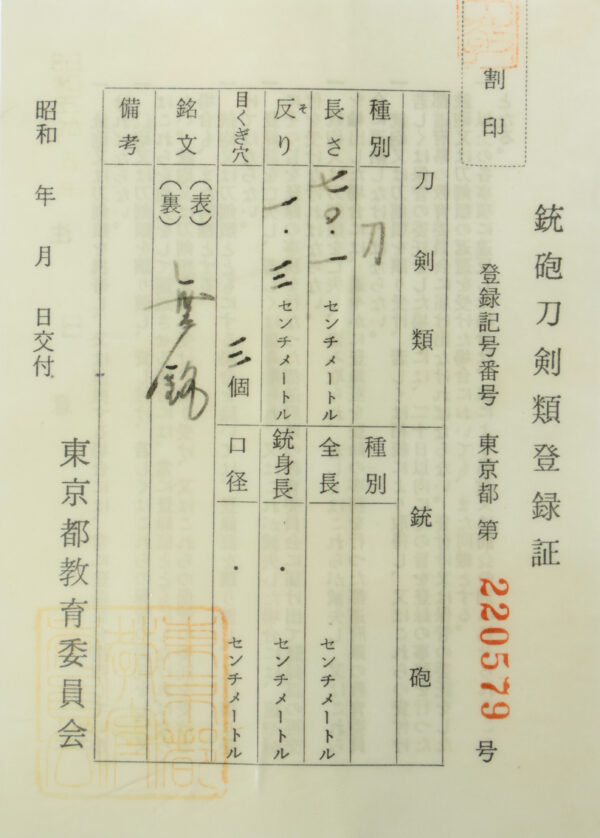 割印
銃砲刀剣類登録証
登録記号番号 東京都 第 220579 号
刀剣類 銃砲
種別 刀 種別
長さ 七〇・一 センチメートル 全長 センチメートル
反り そ 一・三 センチメートル 銃身長 ・ センチメートル
目くぎ穴 三 個 口径 ・ センチメートル
銘文 (表) (裏) 無銘
備考
昭和 年 月 日交付
東京都教育委員会